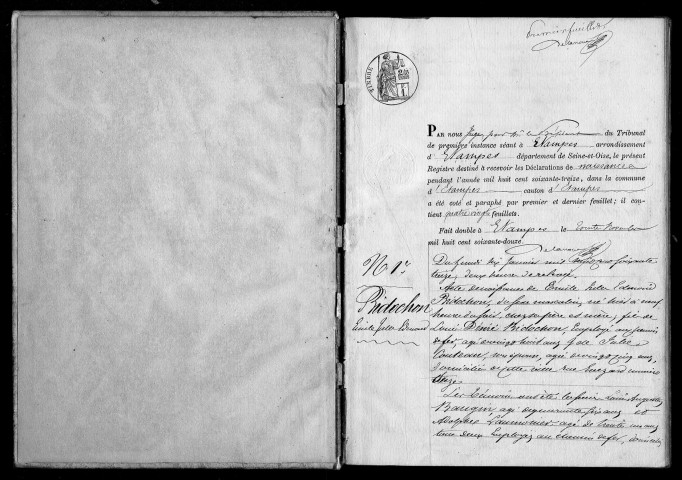 Premier feuillet
TIMBRE
PAR nous Juge pour M. le Président du Tribunal
de première instance séant à Étampes arrondissement
d'Étampes département de Seine-et-Oise, le présent
Registre destiné à recevoir les Déclarations de naissance
pendant l'année mil huit cent soixante-treize, dans la commune
d'Étampes canton d'Étampes
a été coté et paraphé par premier et dernier feuillet; il con-
tient quatre vingt feuillets.
Fait double à Étampes le trente
mil huit cent soixante-douze
N 1er
Bidochon
Emile Jules Edmond
Du lundi six Janvier mil huit cent soixante
treize, deux heures de relevée.
Acte de naissance de Emile Jules Edmond
Bidochon, du sexe masculin, né hier à neuf
heures du soir, chez ses père et mère, fils de
Louis Désiré Bidochon, Employé au chemin
de fer, agé de vingt huit ans, et de Julie
son épouse, agée de vingt cinq ans,
domiciliés en cette ville rue numéro
treize.
Les témoins ont été les sieurs Louis Auguste
Baugin, agé de quarante six ans et
Adolphe agé de trente un ans
tous deux Employés au chemin de fer, domiciliés